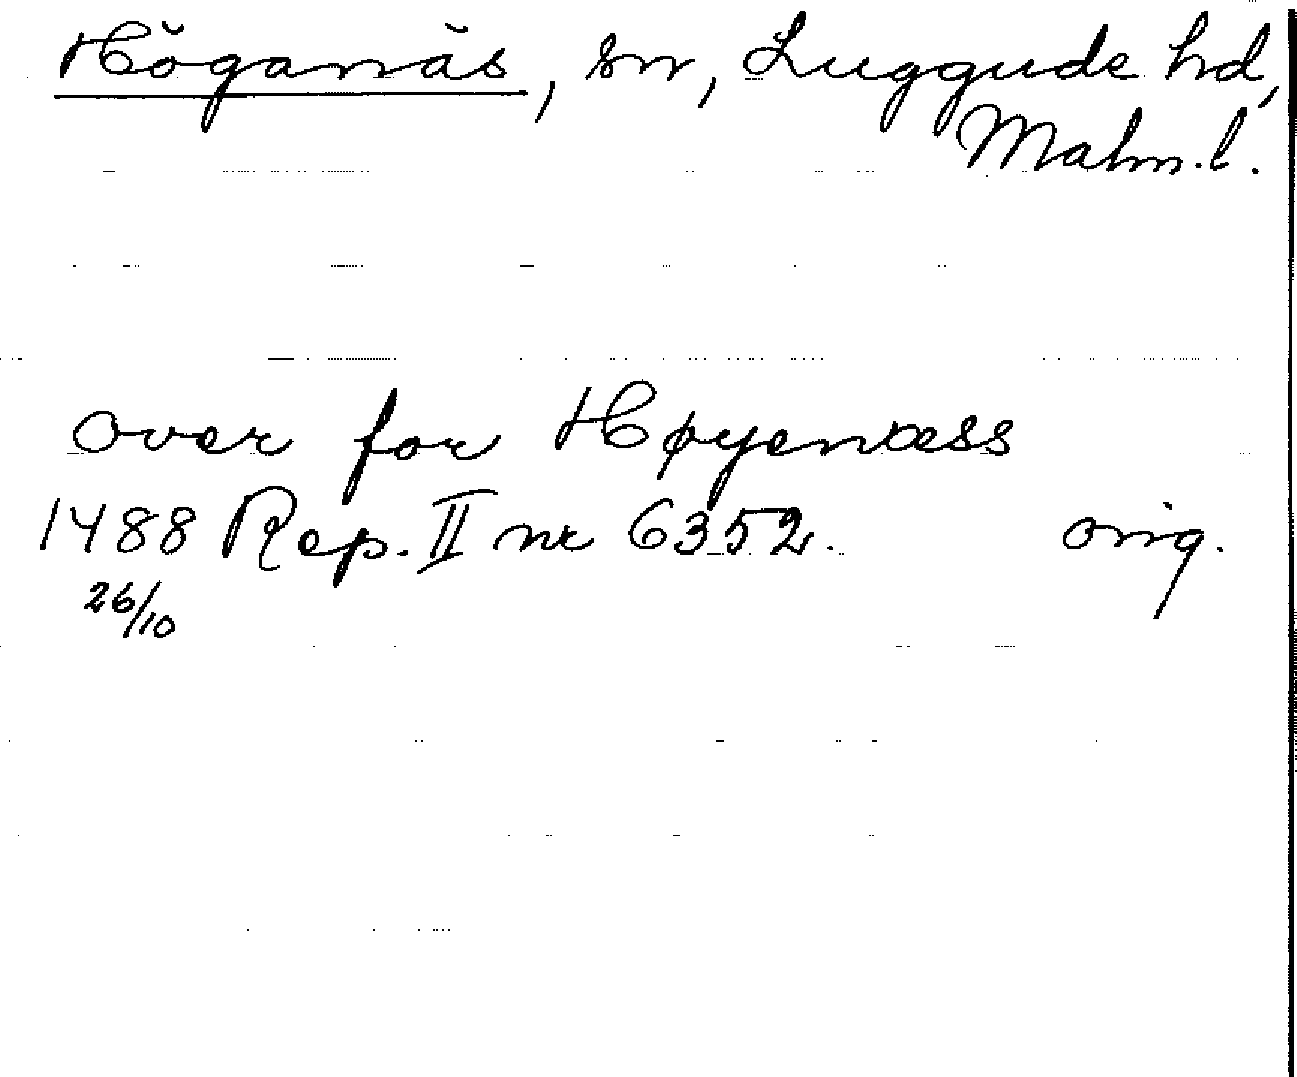 Höganäs, sn, Luggude hd,
Malm.l.
over for Høyenæss
1488 Rep. II nr 6352. orig.
26/10